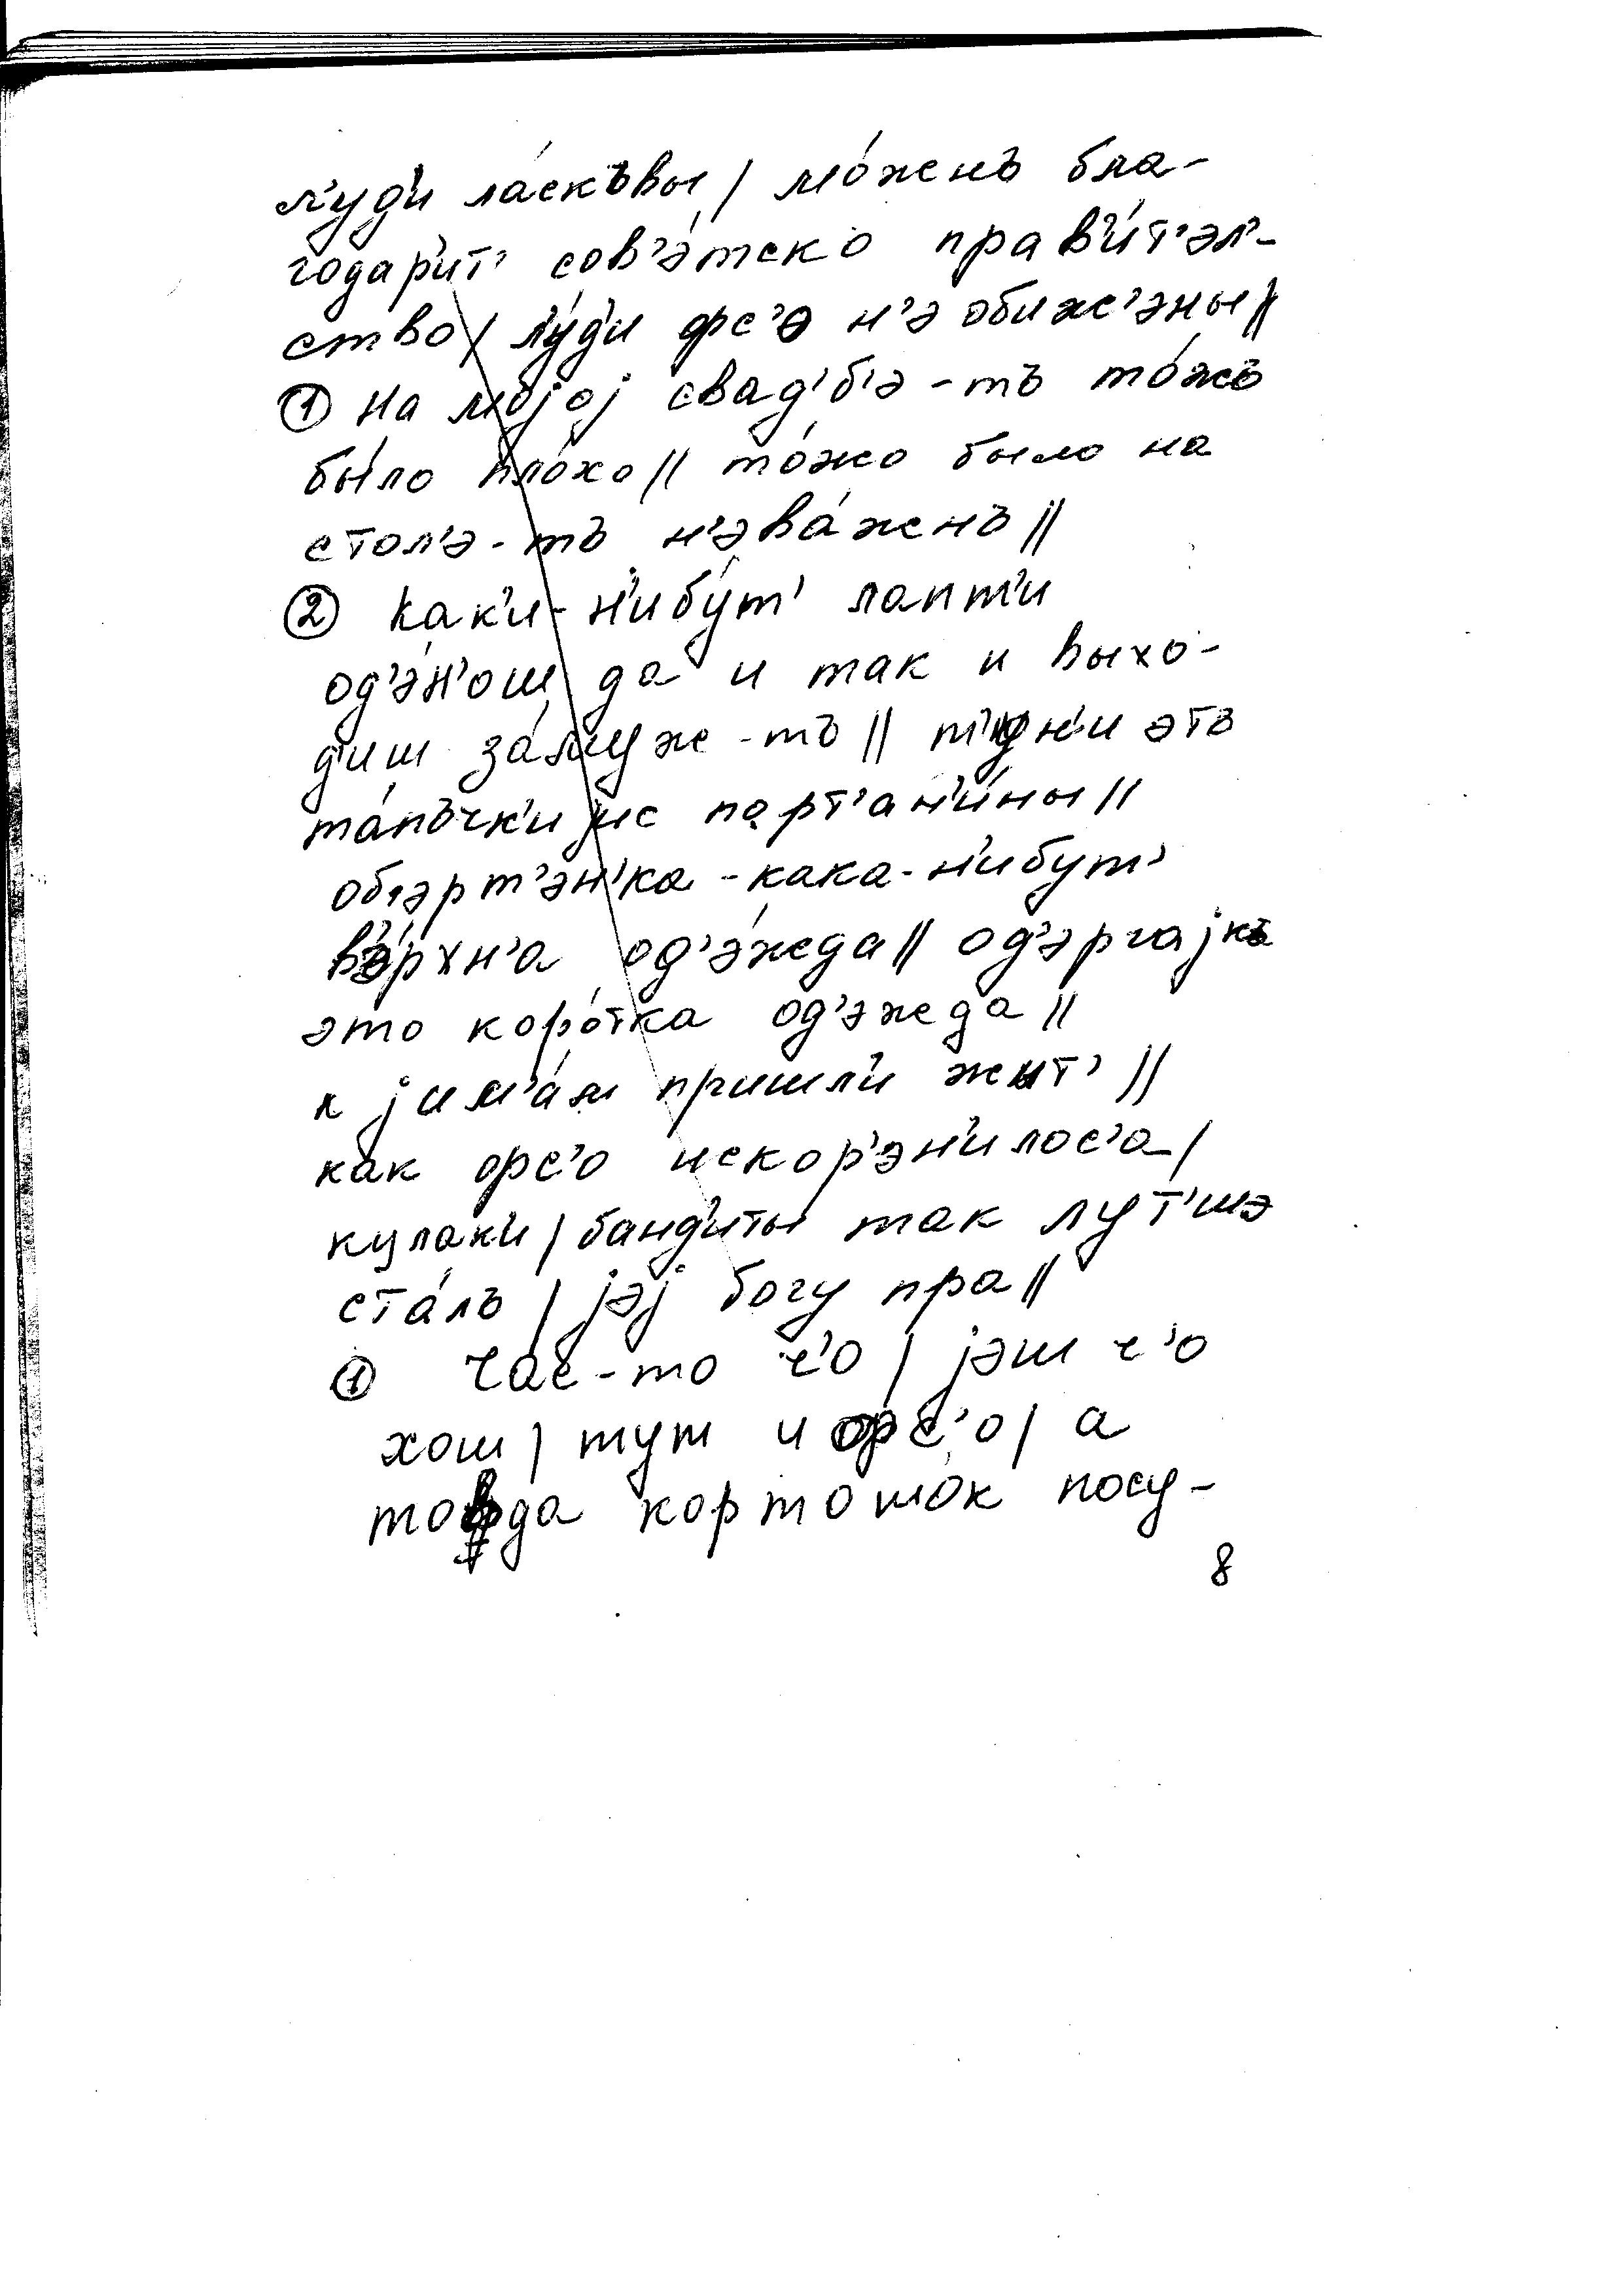 л'уд'и ла́скъвы / мо́жемъ бла-
годар'ит' сов'э́тско прав'и́т'эл'-
ство / л'у́д'и фс'э н'э обиж'эны //
① На мојој свад'б'э-тъ то́жъ
бы́ло пло́хо // то́жо было на
стол'э-тъ н'эва́женъ //
② Как'и-н'ибу́т' лапт'и
од'э́н'ош да и так и выхо-
д'иш за́муж-тъ // т'ун'и этъ
та́пъчк'и ис порт'ан'и́ны //
об'эрт'эн'ка-кака-н'ибут'
в'э́рхн'а од'э́жда // од'эргајкъ
это коро́тка од'эжда //
к јим'а́м пришл'и жыт' //
как фс'о искор'эн'илос'а /
кулак'и / банд'иты так лут'шэ
ста́лъ / јэј богу пра //
① час-то ч'о / јэш ч'о
хош / тут и фс'о / а
товда кортошо́к посу-
8